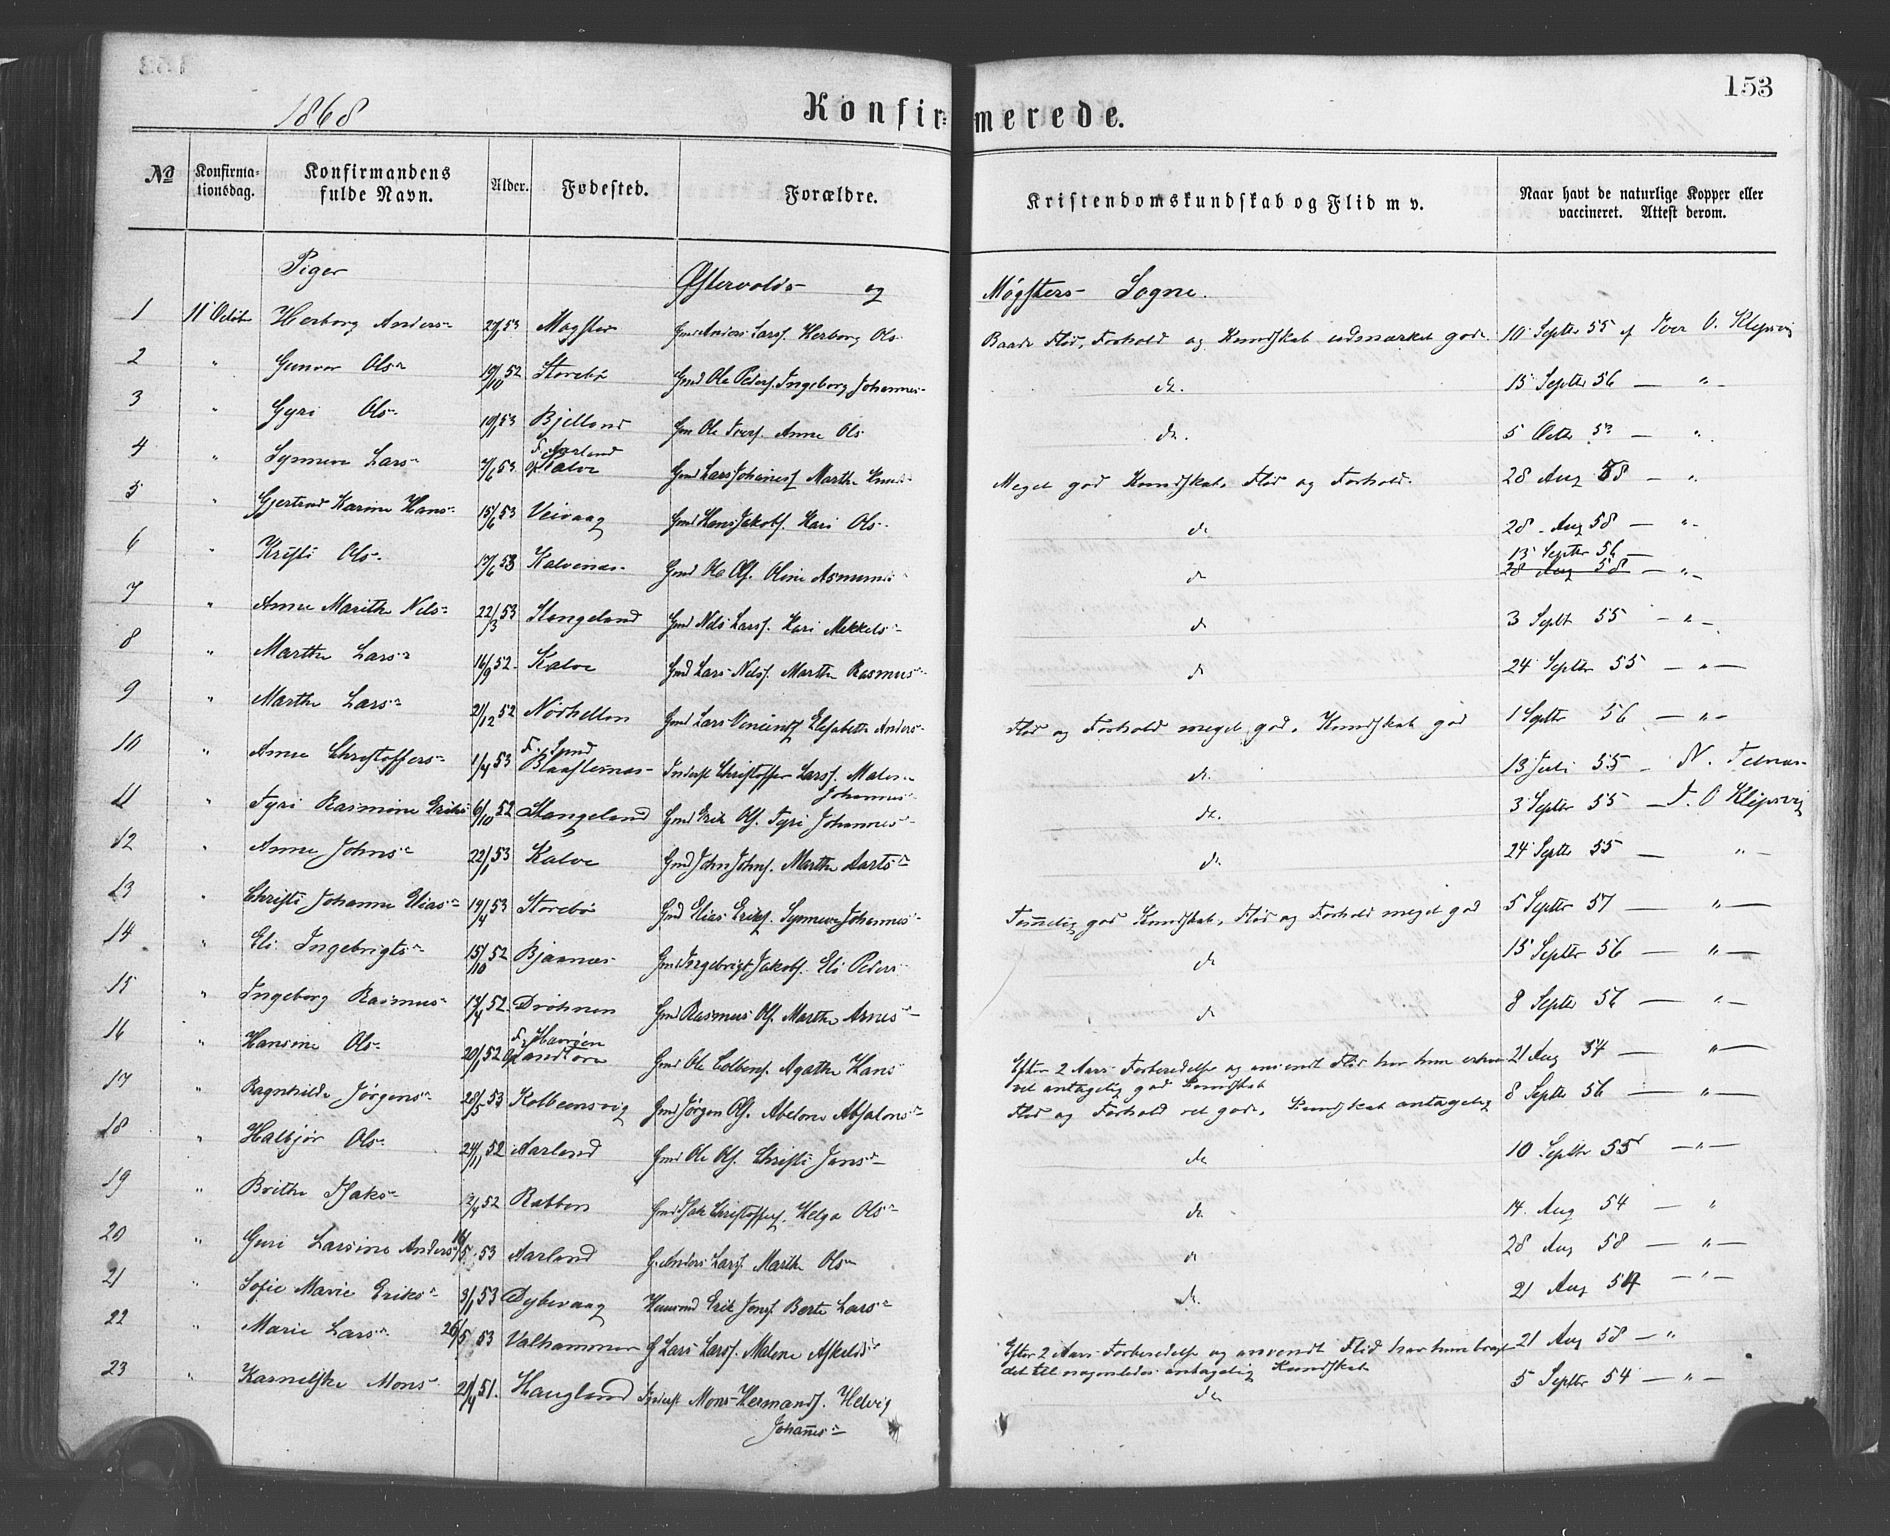 153
1868
Konfirmerede.
No Konfirmationsdag. Konfirmandens fulde Navn. Alder. Fødested. Forældre. Kristendomskundskab og Flid m v. Naar havt de naturlige Kopper eller vaccineret. Attest derom.
Piger Østervolds og Møgsters Sogne.
1 11 Octbr Herborg Anders- 53 Møgster Gmd Anders Larss. Herborg Ols- Baade Flid, Forhold og Kundskab udmærket gode 10 Septbr 55 af Iver O. Klepsvig
2 " Gunvor Ols- 19/10 52 Storebø Gmd Ole Peders. Ingeborg Johannes- do. 15 Septbr 56 — " —
3 " Gyri Ols- 53 Bjelland Gm Ole Ivers. Anne Ols- do. 5 Octbr — "
4 " Synneva Lars- 53 F. Aarland Kalve Gmd Lars Johaness Marthe Knuds- Meget god Kundskab, Flid og Forhold. 28 Aug 58 — "
5 " Gjertrud Karine Hans- 15/6 53 Veivaag Gmd Hans Jakobs. Kari Ols- do 28 Aug 58 — " -
6 " Kristi Ols- 53 Kalvenæs Gmd Ole Ols. Oline Asmunds- do 15 Septbr 56 —
28 Aug 58 — " -
7 " Anne Marithe Nels- 22/3 53 Stangeland Gmd Nels Larss. Kari Mikkels- do 3 Septb 55 — " -
8 " Marthe Lars- 16/9 52. Kalve Gmd Lars Nelss. Marthe Rasmus- do 24 Septbr 55 — " —
9 " Marthe Lars- 21/12 52 Nordhellen Gmd Lars Vincents Elisabeth Anders- Flid og Forhold meget god. Kundskab god 1 Septbr 56 — " —
10 " Anne Christoffers- 1/4 53 F. Sund Inderst Christoffer Larss. Malene Johannes- do. 13 Juli 55 —
11 " Tyri Rasmine Eriks- 6/10 52 Stangeland Gmd Erik Ols. Tyri Johannes- do. 3 Septbr 55 — I. O Klepsvig
12 " Anne Johns- 22/1 53 Kalve Gmd John Johns. Marthe Aarts- do 24 Septbr 55 — " —
13 " Christi Johanne Elias- 14/4 53 Storebø Gmd Elias Eriks. Synneve Johannes- Temmelig god Kundskab, Flid og Forhold meget god 5 Septbr 57 — " —
14 " Eli Ingebrigts- 15/10 52 Bjaanæs Gmd Ingebrigt Jakobs. Eli Peders- do 15 Septbr 56 — " —
15 " Ingeborg Rasmus- 52. Drøhnen Gmd Rasmus Ols. Marthe Arnes- do 8 Septbr 56 — " —
16 " Hansine Ols- 52 F. Havrøen Sandtorv Gmd Ole Colbens. Agathe Hans- Efter 2 Aars Forberedelse og anvendt Flid har hun erhvervet antagelig god Kundskab 21 Aug 54 — " —
17 " Ragnhilde Jørgens- 53 Kolbeensvig Gmd Jørgen Ols. Abelone Absalons- Flid og Forhold vel gode, Kundskab antagelig 8 Septbr 56 — " —
18 " Halbjør Ols- 24/11 52 Aarland Gmd Ole Ols. Christi Jens- do 10 Septbr 55 — " —
19 " Brithe Isaks- 52 Rabben Gmd Isak Christoffers. Helga Ols- do 14 Aug 54 — "
20 Guri Larsine Anders- 53 Aarland G. Anders Larss. Marithe Ols- do 28 Aug 58 — " —
21 " Sofie Marie Eriks- 3/1 53 Dybevaag Huusmd Erik Jons Berte Lars- do. 21 Aug 54 — " —
22 " Marie Lars- 26/5 53 Valhammer G Lars Larss. Malene Askelds- Efter 2 Aars Forberedelse og anvendt Flid har hun bragt det til nogenledes antagelig Kundskab 21 Aug 58 — "
23 " Karnelske Mons- 51. Haugland Inderst Mons Hermands. Helvig Johannes- do 5 Septbr 54 — " —